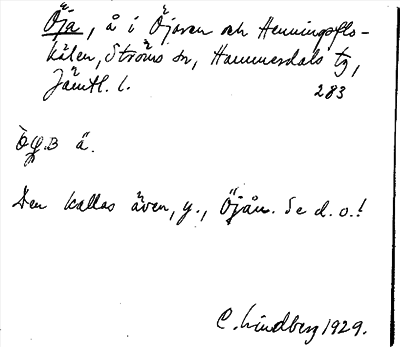 Öja, å i Öjaren och Henningsflo-
kälen, Ströms sn, Hammerdals tg,
Jämtl. l. 283
ä.
Den kallas även, y., Öjån. Se d. o.!
C. Lindberg 1929.